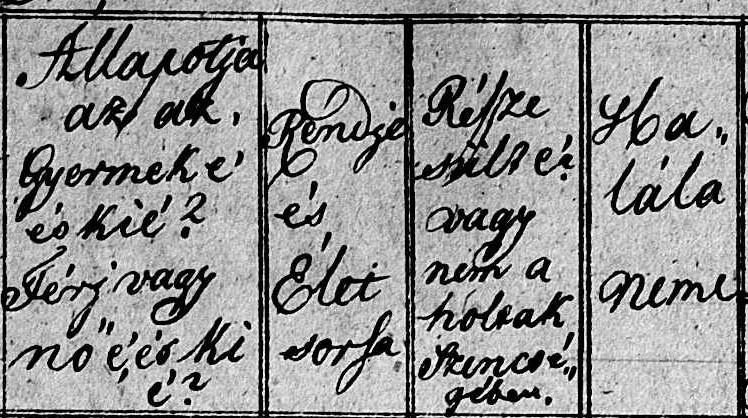 Állapotja
az ak.
Gyermek é
és kié?
Férj vagy
nő é, és ki
é?
Rendje
és
Élet
sorsa
Része
sült é?
vagy
nem a
holtak
Szentsé„
gében.
Ha„
lála
neme